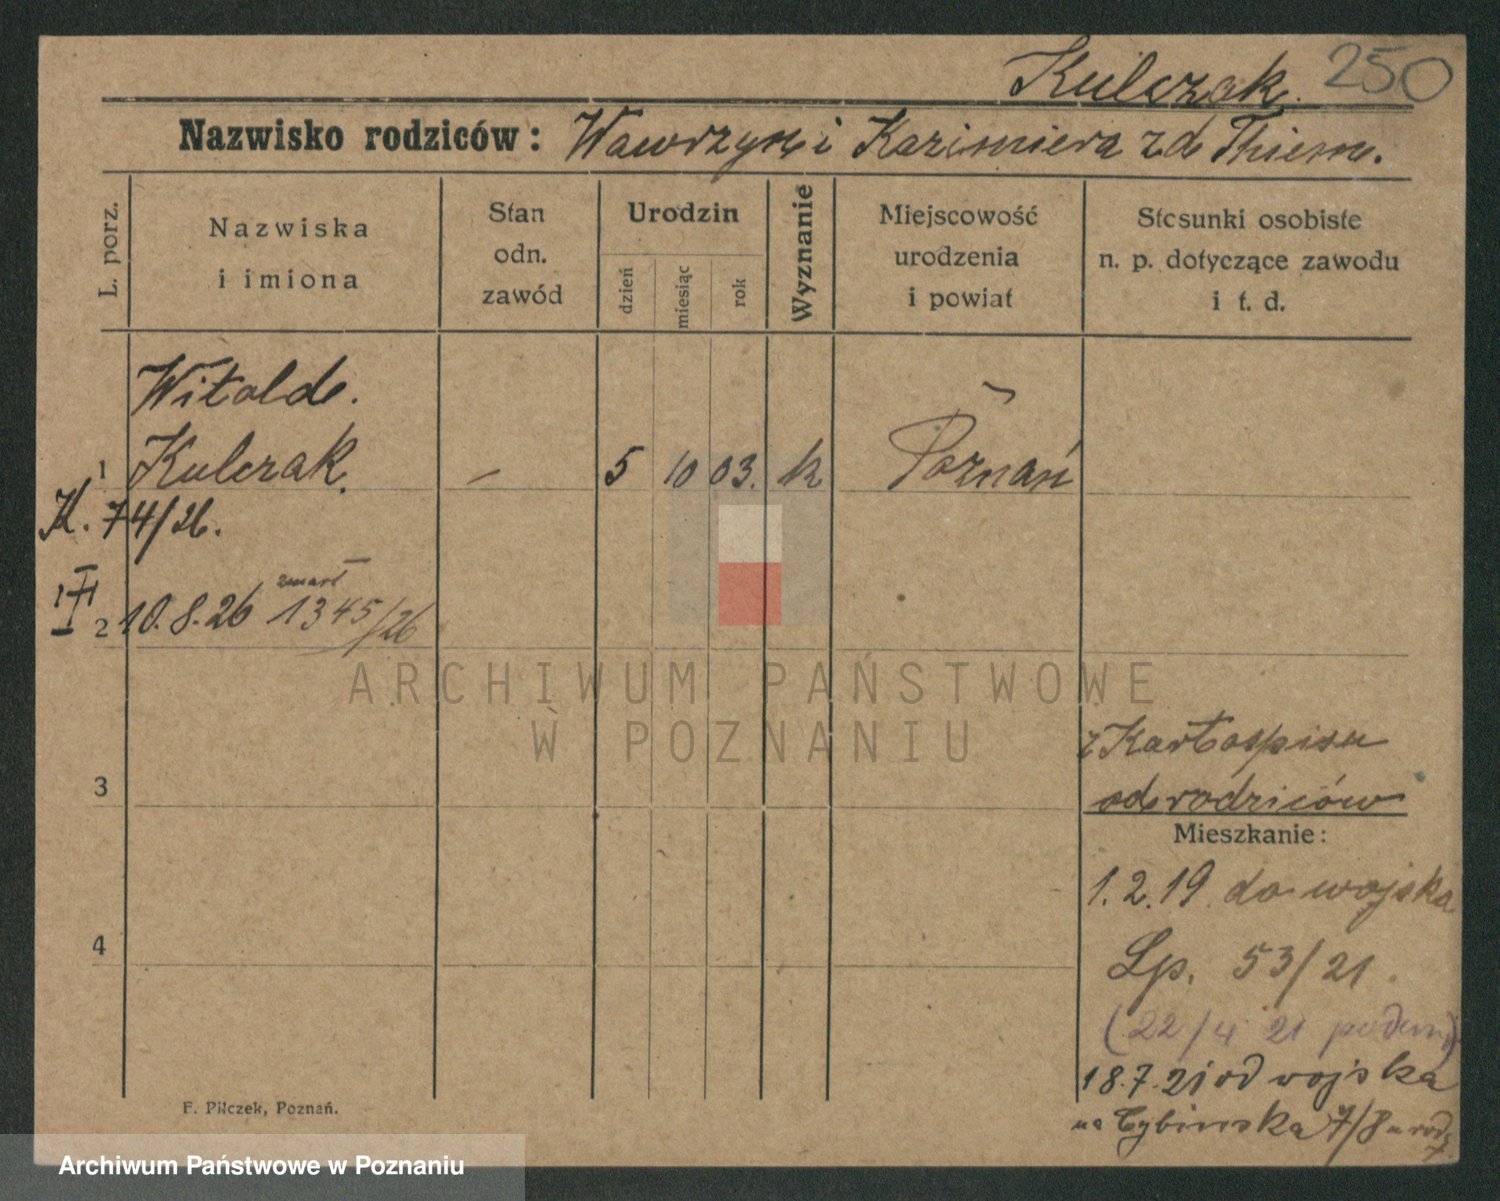 Kulczak. 250
Nazwisko rodziców: Wawrzyn i Kazimiera zd Thiem.
L. porz.
Nazwiska
i imiona
Stan
odn.
zawód
Urodzin
dzień
miesiąc
rok
Wyznanie
Miejscowość
urodzenia
i powiat
Stosunki osobiste
n. p. dotyczące zawodu
i t. d.
Witold.
1 Kulczak. – 5 10 03. k Poznań
K. 74/26.
zmarł
2 10.8.26 1345/26
z Kartospisu
3 od rodziców
Mieszkanie:
1.2.19 do wojska
4 Lp. 53/21.
(22/4 21
18.7.21 od wojska
na Cybińska 7/8 u rodz.
F. Pilczek, Poznań.
ARCHIWUM PAŃSTWOWE
W POZNANIU
Archiwum Państwowe w Poznaniu